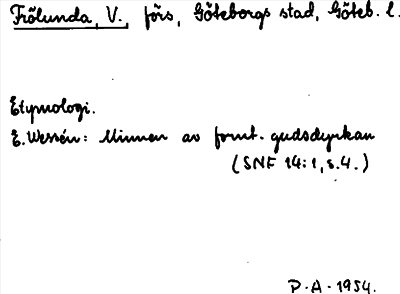 Frölunda, V., förs, Göteborgs stad, Göteb. l.
Etymologi.
E. Wessén: Minnen av fornt. gudsdyrkan
(SNF 14:1, s.4.)
P.A. 1954.